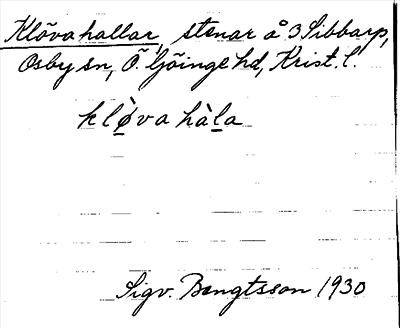 Klövahallar, stenar å 3 Sibbarp,
Osby sn, Ö. Göinge hd, Krist. l.
klø̀va hàla
Sigv. Bengtsson 1930